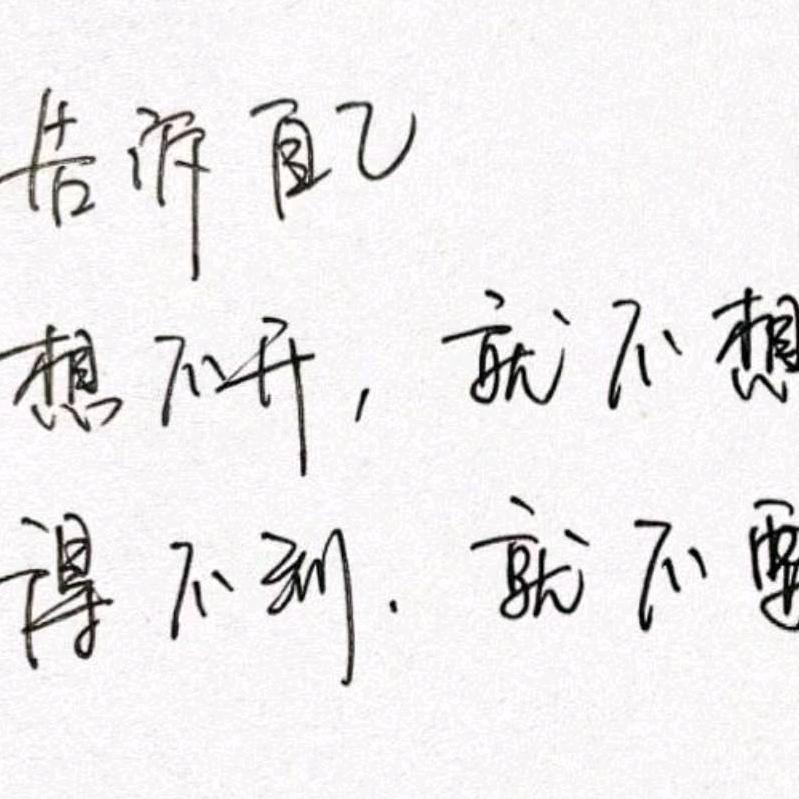 告诉自己
想不开,就不想
得不到.就不要